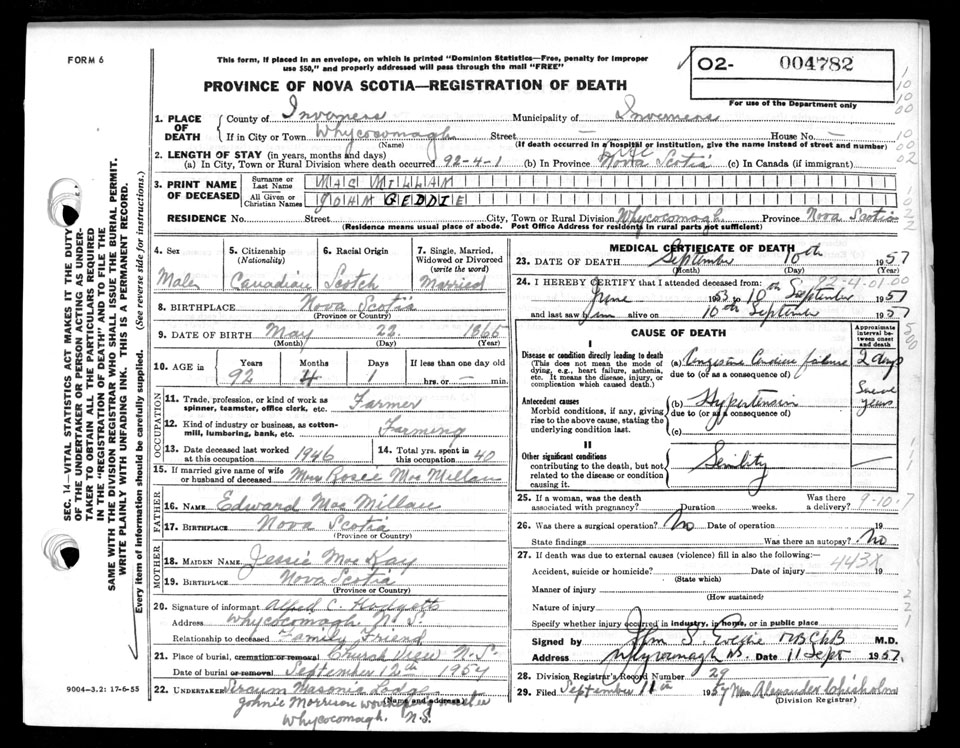 FORM 6
This form, if placed in an envelope, on which is printed "Dominion Statistics—Free, penalty for improper
use $50," and properly addressed will pass through the mail "FREE"
PROVINCE OF NOVA SCOTIA—REGISTRATION OF DEATH
O2- 004782
For use of the Department only
1. PLACE OF DEATH County of Inverness Municipality of Inverness
If in City or Town Whycocomagh Street — House No. —
(Name) (If death occurred in a hospital or institution, give the name instead of street and number)
2. LENGTH OF STAY (in years, months and days)
(a) In City, Town or Rural Division where death occurred 92-4-1 (b) In Province Life Nova Scotia (c) In Canada (if immigrant)
3. PRINT NAME OF DECEASED Surname or Last Name MAC MILLAN
All Given or Christian Names JOHN GEDDIE
RESIDENCE No. Street City, Town or Rural Division Whycocomagh Province Nova Scotia
(Residence means usual place of abode. Post Office Address for residents in rural parts not sufficient)
4. Sex Male
5. Citizenship (Nationality) Canadian
6. Racial Origin Scotch
7. Single, Married, Widowed or Divorced (write the word) Married
8. BIRTHPLACE Nova Scotia
(Province or Country)
9. DATE OF BIRTH May 22 1865
(Month) (Day) (Year)
10. AGE in Years 92 Months 4 Days 1 If less than one day old hrs. or — min.
OCCUPATION
11. Trade, profession, or kind of work as spinner, teamster, office clerk, etc. Farmer
12. Kind of industry or business, as cotton-mill, lumbering, bank, etc. Farming
13. Date deceased last worked at this occupation 1946 14. Total yrs. spent in this occupation 40
15. If married give name of wife or husband of deceased Mrs Rosie MacMillan
FATHER
16. NAME Edward MacMillan
17. BIRTHPLACE Nova Scotia
(Province or Country)
MOTHER
18. MAIDEN NAME Jessie MacKay
19. BIRTHPLACE Nova Scotia
(Province or Country)
20. Signature of informant Alfred C. Hodgetts
Address Whycocomagh N.S.
Relationship to deceased Family Friend
21. Place of burial, cremation or removal Church View N.S.
Date of burial or removal September 12th 1957
22. UNDERTAKER Masonic Lodge
(Name and address)
Johnie Morrison
Whycocomagh. N.S.
9004—3.2: 17-6-55
SEC. 14—VITAL STATISTICS ACT MAKES IT THE DUTY
OF THE UNDERTAKER OR PERSON ACTING AS UNDER-
TAKER TO OBTAIN ALL THE PARTICULARS REQUIRED
IN THE "REGISTRATION OF DEATH" AND TO FILE THE
SAME WITH THE DIVISION REGISTRAR WHO SHALL ISSUE THE BURIAL PERMIT.
WRITE PLAINLY WITH UNFADING INK. THIS IS A PERMANENT RECORD.
Every item of information should be carefully supplied. (See reverse side for instructions.)
MEDICAL CERTIFICATE OF DEATH
23. DATE OF DEATH September 10th 1957
(Month) (Day) (Year)
24. I HEREBY CERTIFY that I attended deceased from:
92-4-01.00
June 1953 to 10th September 1957
and last saw him alive on 10th September 1957
CAUSE OF DEATH
Approximate interval between onset and death
I
Disease or condition directly leading to death (a) Congestive Cardiac failure 2 days
(This does not mean the mode of dying, e.g., heart failure, asthenia, etc. It means the disease, injury, or complication which caused death.)
due to (or as a consequence of)
Antecedent causes (b) Hypertension years
Morbid conditions, if any, giving rise to the above cause, stating the underlying condition last.
due to (or as a consequence of)
(c)
II
Other significant conditions Senility —
contributing to the death, but not related to the disease or condition causing it.
25. If a woman, was the death associated with pregnancy? Duration weeks. Was there a delivery?
9-10-7
26. Was there a surgical operation? No Date of operation 19
State findings Was there an autopsy? No
27. If death was due to external causes (violence) fill in also the following:—
443X
Accident, suicide or homicide? Date of injury 19
(State which)
Manner of injury
(How sustained)
Nature of injury
Specify whether injury occurred in industry, in home, or in public place
Signed by MBChB M.D.
Address Whycocomagh NS. Date 11 Sept 1957
28. Division Registrar's Record Number 29
29. Filed September 11th 1957 Wm. Alexander Chisholm
(Division Registrar)